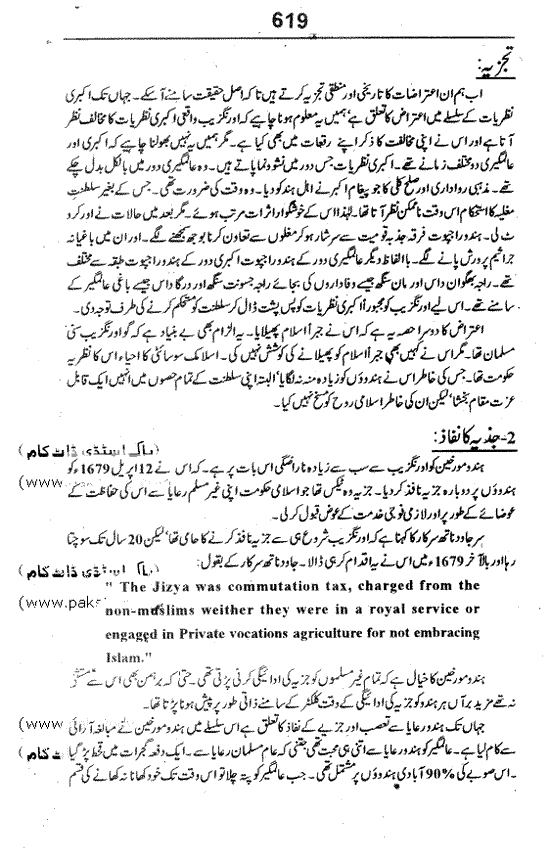 619
تجزیہ:
اب ہم ان اعتراضات کا تاریخی اور منطقی تجزیہ کرتے ہیں تاکہ اصل حقیقت سامنے آ سکے۔ جہاں تک اکبری
نظریات کے سلسلے میں اعتراض کا تعلق ہے‘ ہمیں یہ معلوم ہونا چاہیے کہ اورنگزیب واقعی اکبری نظریات کا مخالف نظر
آتا ہے اور اس نے اپنی مخالفت کا ذکر اپنے رقعات میں بھی کیا ہے۔ مگر ہمیں یہ نہیں بھولنا چاہیے کہ اکبری اور
عالمگیری دو مختلف زمانے تھے۔ اکبری نظریات جس دور میں نشوونما پاتے ہیں۔ وہ عالمگیری دور میں بالکل بدل چکے
تھے۔ مذہبی رواداری اور صلح کلی کا جو پیغام اکبر نے اہل ہند کو دیا۔ وہ وقت کی ضرورت تھی۔ جس کے بغیر سلطنت
مغلیہ کا استحکام اس وقت ناممکن نظر آتا تھا۔ لہٰذا اس کے خوشگوار اثرات مرتب ہوئے۔ مگر بعد میں حالات نے اور کرو
ٹ لی۔ ہندو راجپوت فرقہ جذبہ قومیت سے سرشار ہو کر مغلوں سے تعاون کرنا بوجھ سمجھنے لگے۔ اور ان میں باغیانہ
جراثیم پرورش پانے لگے۔ باالفاظ دیگر عالمگیری دور کے ہندو راجپوت اکبری دور کے ہندو راجپوت طبقہ سے مختلف
تھے۔ راجہ بھگوان داس اور مان سنگھ جیسے وفاداروں کی بجائے راجہ جسونت سنگھ اور درگا داس جیسے باغی عالمگیر کے
سامنے تھے۔ اس لیے اورنگزیب کو مجبوراً اکبری نظریات کو پس پشت ڈال کر سلطنت کو مستحکم کرنے کی طرف توجہ دی۔
اعتراض کا دوسرا حصہ یہ ہے کہ اس نے جبراً اسلام پھیلایا۔ یہ الزام بھی بے بنیاد ہے کہ گو اورنگزیب سنی
مسلمان تھا۔ مگر اس نے کہیں بھی جبراً اسلام کو پھیلانے کی کوشش نہیں کی۔ اسلامک سوسائٹی کا احیاء اس کا نظریہ
حکومت تھا۔ جس کی خاطر اس نے ہندوؤں کو زیادہ منہ نہ لگایا‘ البتہ اپنی سلطنت کے تمام حصوں میں انہیں ایک قابل
عزت مقام بخشا‘ لیکن ان کی خاطر اسلامی روح کو مسخ نہیں کیا۔
2- جذیہ کا نفاذ:
(پاک اسٹڈی ڈاٹ کام)
ہندو مورخین کو اورنگزیب سے سب سے زیادہ ناراضگی اس بات پر ہے۔ کہ اس نے 12 اپریل 1679ء کو
(www.
ہندوؤں پر دوبارہ جزیہ نافذ کر دیا۔ جزیہ وہ ٹیکس تھا جو اسلامی حکومت اپنی غیر مسلم رعایا سے اس کی حفاظت کے
عوضانے کے طور پر اور لازمی فوجی خدمت کے عوض قبول کرلی۔
سر جادو ناتھ سرکار کا کہنا ہے کہ اورنگزیب شروع ہی سے جزیہ نافذ کرنے کا حامی تھا‘ لیکن 20 سال تک سوچتا
رہا اور بالآخر 1679ء میں اس نے یہ اقدام کر ہی ڈالا۔ جادو ناتھ سرکار کے بقول:
(پاک اسٹڈی ڈاٹ کام)
" The Jizya was commutation tax, charged from the
(www.paks
non-muslims weither they were in a royal service or
engaged in Private vocations agriculture for not embracing
Islam."
ہندو مورخین کا خیال ہے کہ تمام غیر مسلموں کو جزیہ کی ادائیگی کرنی پڑتی تھی۔ حتیٰ کہ برہمن بھی اس سے مستثنیٰ
نہ تھے مزید برآں ہر ہندو کو جزیہ کی ادائیگی کے وقت کلکٹر کے سامنے ذاتی طور پر پیش ہونا پڑتا تھا۔
جہاں تک ہندو رعایا سے تعصب اور جزیے کے نفاذ کا تعلق ہے اس سلسلے میں ہندو مورخین نے مبالغہ آرائی
(www.
سے کام لیا ہے۔ عالمگیر کو ہندو رعایا سے اتنی ہی محبت تھی جتنی کہ عام مسلمان رعایا سے۔ ایک دفعہ گجرات میں قحط پڑ گیا
ٹ کام)
۔ اس صوبے کی 90% آبادی ہندوؤں پر مشتمل تھی۔ جب عالمگیر کو پتہ چلا تو اس وقت تک خود کھانا نہ کھانے کی قسم